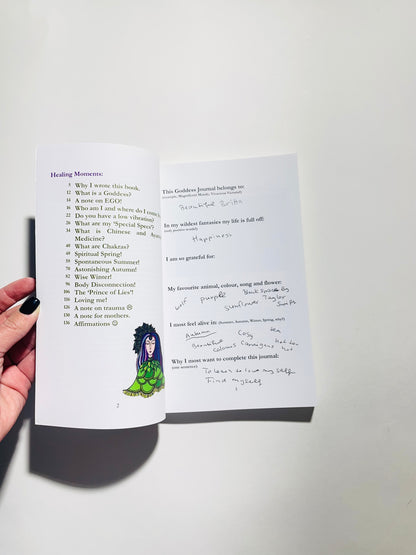 Healing Moments:
5 Why I wrote this book,
12 What is a Goddess?
14 A note on EGO!
16 Who am I and where do I come
22 Do you have a low vibration?
26 What are my 'Special Specs'?
34 What is Chinese and
Medicine?
40 What are Chakras?
49 Spiritual Spring!
58 Spontaneous Summer!
70 Astonishing Autumn!
82 Wise Winter!
96 Body Disconnection!
106 The 'Prince of Lies'!
116 Loving me!
126 A note on trauma ☹
130 A note for mothers.
136 Affirmations ☺
2
This Goddess Journal belongs to:
Beautiful
In my wildest fantasies my life is full off:
Happiness
I am so grateful for:
My favourite animal, colour, song and flower:
wolf purple Blank Space By
Sunflower Taylor
Swift
I most feel alive in: (Summer, Autumn, Winter, Spring, why?)
Autumn Cosy tea
Beautiful colours Cardigans, hot
hot
Why I most want to complete this journal:
(one sentence)
To learn to love myself
Find myself